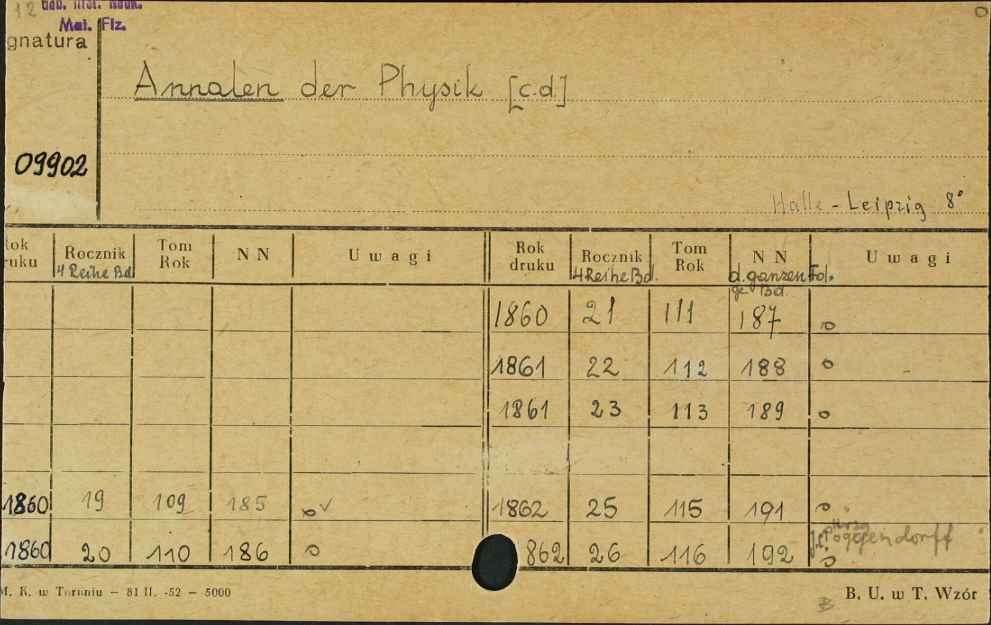 12
Mat. Fiz.
gnatura
Annalen der Physik [c.d.]
09902
Halle - Leipzig 8°
Rok druku Rocznik Tom Rok N N Uwagi Rok druku Rocznik Tom Rok N N Uwagi
4 Reihe Bd 4 Reihe Bd. d. ganzen Fol. ge Bd.
1860 21 111 187 o
1861 22 112 188 o
1861 23 113 189 o
1860 19 109 185 o ✓ 1862 25 115 191 o
1860 20 110 186 o 862 26 116 192 o Poggendorff
M. K. w Toruniu – 81 II. -52 – 5000
B
B. U. w T. Wzór